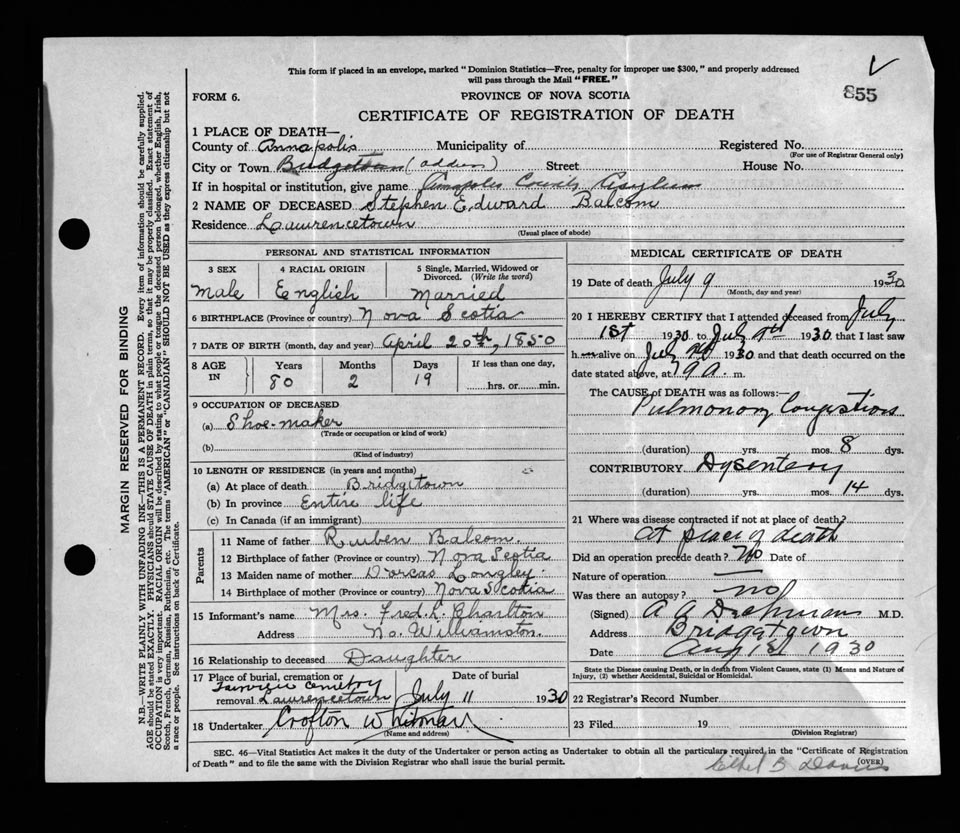 This form if placed in an envelope, marked "Dominion Statistics—Free, penalty for improper use $300," and properly addressed
will pass through the Mail "FREE."
855
FORM 6.
PROVINCE OF NOVA SCOTIA
CERTIFICATE OF REGISTRATION OF DEATH
1 PLACE OF DEATH—
County of Annapolis Municipality of Registered No.
(For use of Registrar General only)
City or Town Bridgetown Street House No.
If in hospital or institution, give name Annapolis County Asylum
2 NAME OF DECEASED Stephen Edward Balcom
Residence Lawrencetown
(Usual place of abode)
PERSONAL AND STATISTICAL INFORMATION
3 SEX 4 RACIAL ORIGIN 5 Single, Married, Widowed or
Divorced. (Write the word)
Male English Married
6 BIRTHPLACE (Province or country) Nova Scotia
7 DATE OF BIRTH (month, day and year) April 20th, 1850
8 AGE IN Years Months Days If less than one day,
80 2 19 hrs. or min.
9 OCCUPATION OF DECEASED
(a) Shoe-maker
(Trade or occupation or kind of work)
(b)
(Kind of industry)
10 LENGTH OF RESIDENCE (in years and months)
(a) At place of death Bridgetown
(b) In province Entire life
(c) In Canada (if an immigrant)
Parents
11 Name of father Reuben Balcom.
12 Birthplace of father (Province or country) Nova Scotia
13 Maiden name of mother Dorcas Longley.
14 Birthplace of mother (Province or country) Nova Scotia
15 Informant's name Mrs. Fred. L. Charlton
Address No. Williamston.
16 Relationship to deceased Daughter
17 Place of burial, cremation or Date of burial
Fairview Cemetry
removal Lawrencetown July 11 1930
18 Undertaker Crofton Whitman
(Name and address)
MEDICAL CERTIFICATE OF DEATH
19 Date of death July 9 1930
(Month, day and year)
20 I HEREBY CERTIFY that I attended deceased from July
1st 1930 to July 1930 that I last saw
h alive on July 1930 and that death occurred on the
date stated above, at m.
The CAUSE OF DEATH was as follows:
Pulmonary Congestion
(duration) yrs. mos. 8 dys.
CONTRIBUTORY Dysentery
(duration) yrs. mos. 14 dys.
21 Where was disease contracted if not at place of death?
At place of death
Did an operation precede death? No Date of
Nature of operation —
Was there an autopsy? no
(Signed) A A M.D.
Address Bridgetown
Date Aug 1st 1930
State the Disease causing Death, or in death from Violent Causes, state (1) Means and Nature of
Injury, (2) whether Accidental, Suicidal or Homicidal.
22 Registrar's Record Number
23 Filed 19
(Division Registrar)
SEC. 46—Vital Statistics Act makes it the duty of the Undertaker or person acting as Undertaker to obtain all the particulars required in the "Certificate of Registration
of Death" and to file the same with the Division Registrar who shall issue the burial permit.
(OVER)
Ethel B
MARGIN RESERVED FOR BINDING
N.B.—WRITE PLAINLY WITH UNFADING INK—THIS IS A PERMANENT RECORD. Every item of information should be carefully supplied.
AGE should be stated EXACTLY. PHYSICIANS should STATE CAUSE OF DEATH in plain terms, so that it may be properly classified. Exact statement of
OCCUPATION is very important. RACIAL ORIGIN will be described by stating to what people or tongue the deceased person belonged, whether English, Irish,
Scotch, French, German, Russian, Ruthenian, etc. The terms "AMERICAN" or "CANADIAN" SHOULD NOT BE USED as they express citizenship but not
a race or people. See instructions on back of Certificate.